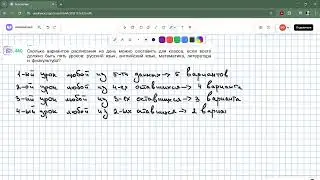 440 Сколько вариантов расписания на день можно составить для класса, если всего
должно быть пять уроков: русский язык, английский язык, математика, литература
и физкультура?
1-ый урок любой из 5-ти данных → 5 вариантов
2-ой урок любой из 4-ех оставшихся → 4 варианта
3-ий урок любой из 3-ех оставшихся → 3 варианта
4-ый урок любой из 2-ых оставшихся → 2 вариа